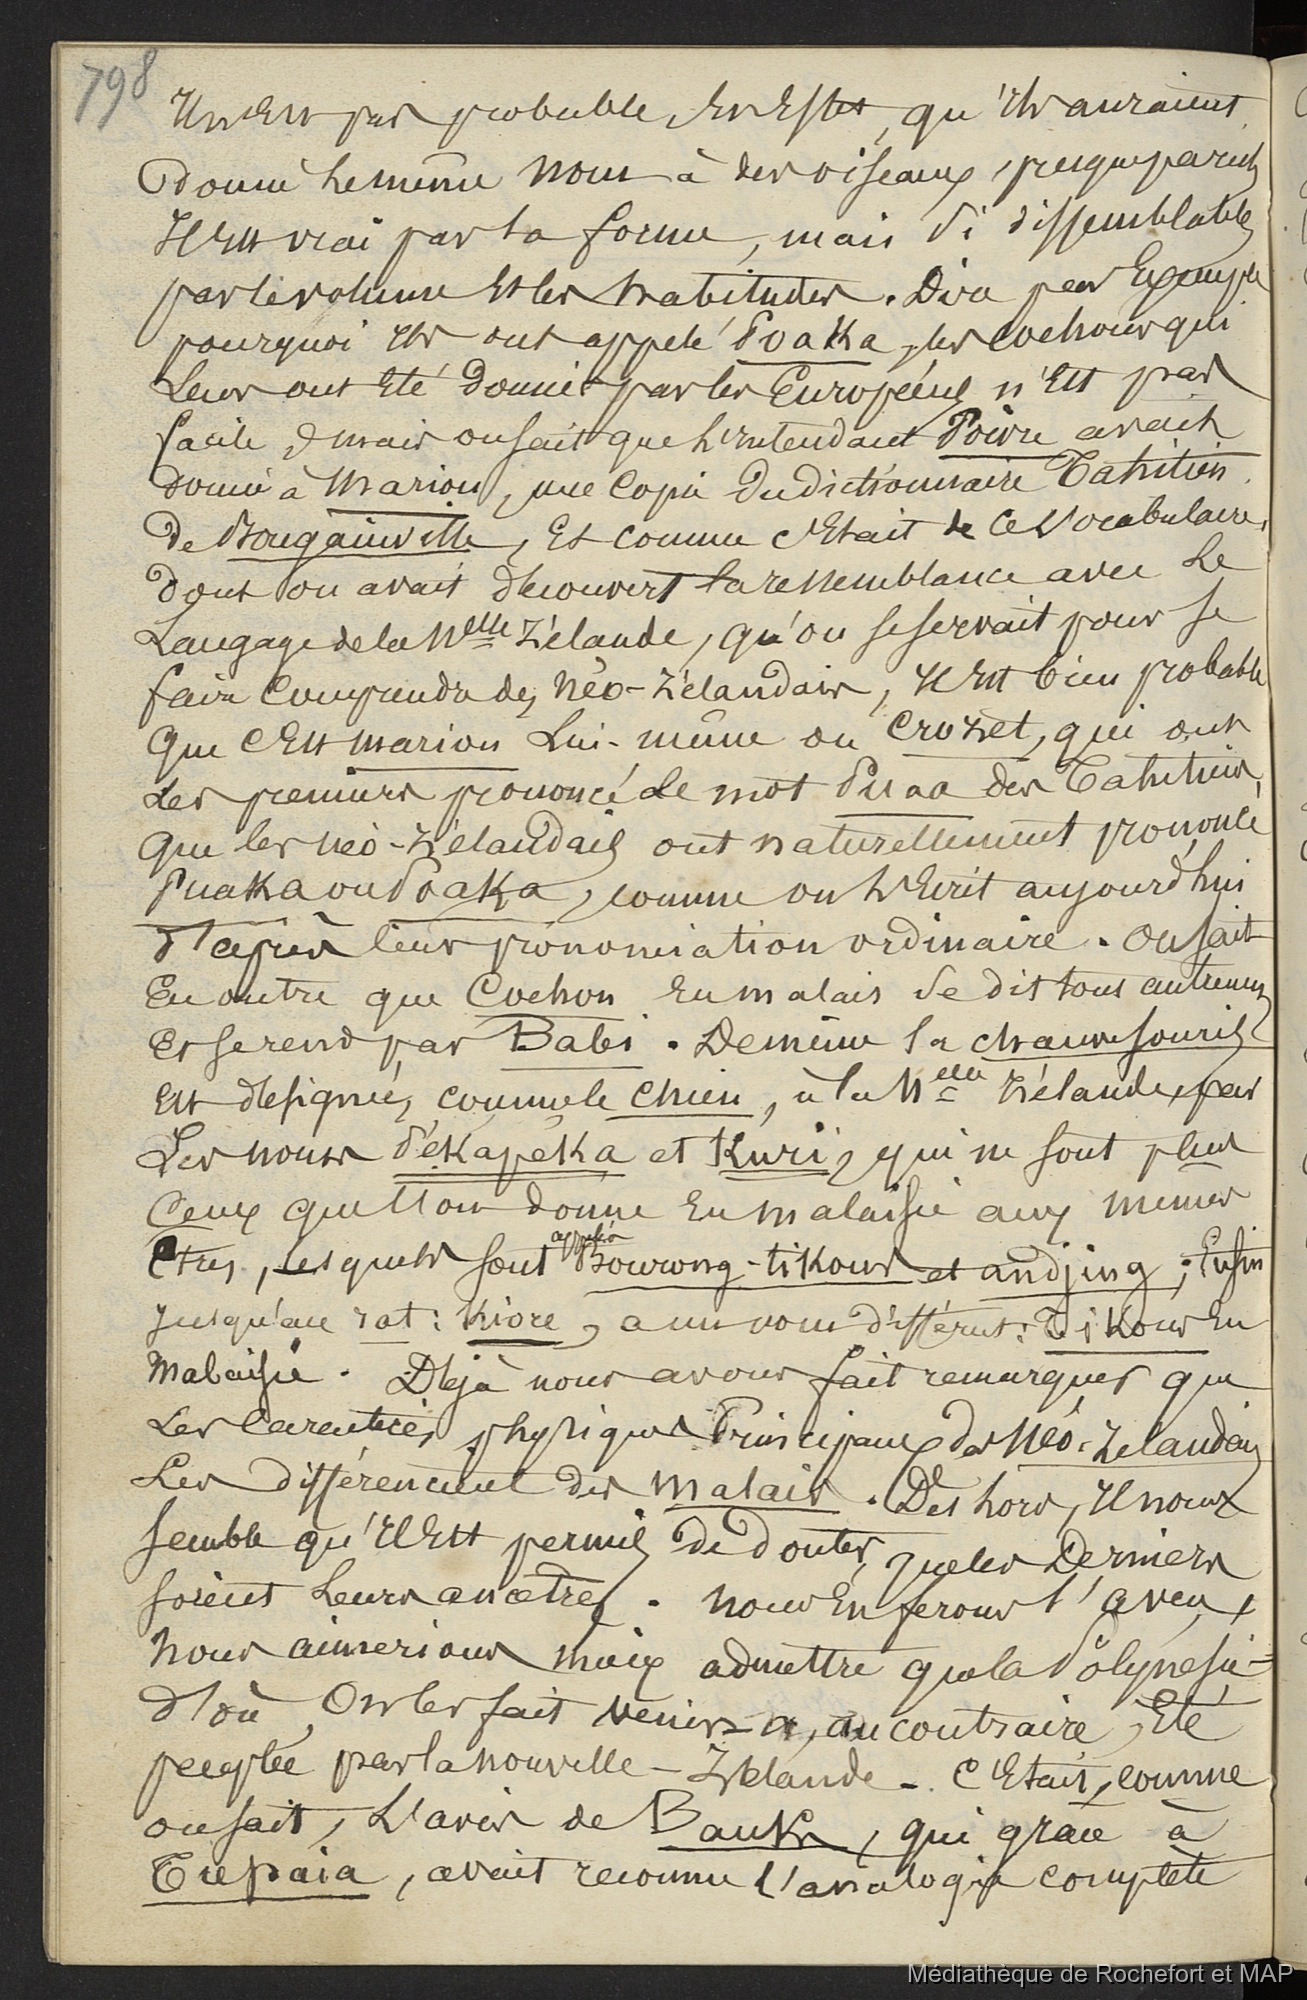 798
Il n'est pas probable, en effet, qu'ils auraient
donné le même nom à des oiseaux, presque pareils
Il est vrai par la forme, mais si dissemblables
par le volume et les habitudes. Dire par Exemple
pourquoi ils ont appelé Poaka, les cochons qui
Leur ont été donnés par les Européens n'est pas
facile, mais on sait que l'intendant Poivre avait
donné à Marion, une Copie du dictionnaire Tahitien
de Bougainville, Et comme c'était ce Vocabulaire,
dont on avait découvert la ressemblance avec Le
Langage de la Nelle Zélande, qu'on se servait pour se
faire Comprendre des Néo-Zélandais, Il est bien probable
que c'est Marion Lui-même ou Crozet, qui ont
Les premiers prononcé le mot Puaa des Tahitiens,
que les Néo-Zélandais ont naturellement prononcé
Puaka ou Poaka, comme on l'Ecrit aujourd'hui
d'après leur prononciation ordinaire. On sait
En outre que Cochon En malais se dit tout autrement
Et se rend par Babi. De même la chauve souris
est désignée, comme le chien, à la Nelle Zélande, par
Les noms Pékapéka et Kuri, qui ne sont plus
Ceux que l'on donne En Malaisie aux mêmes
Etres, lesquels sont appelés Bourong-tikous et andjing; Enfin
jusqu'au rat: Kiore, a un nom différent: Tikous En
Malaisie. Déjà nous avons fait remarquer que
Les Caractères physiques Principaux des Néo-Zélandais
Les différencient des Malais. Dès lors, Il nous
semble qu'il est permis de douter, que les Derniers
soient Leurs ancêtres. Nous En ferons l'aveu,
Nous aimerions mieux admettre que la Polynésie
d'où, On les fait venir a, au contraire, Eté
peuplée par la Nouvelle-Zélande. C'était, comme
on sait, L'avis de Banks, qui grâce à
Tupaia, avait reconnu l'analogie complète
Médiathèque de Rochefort et MAP